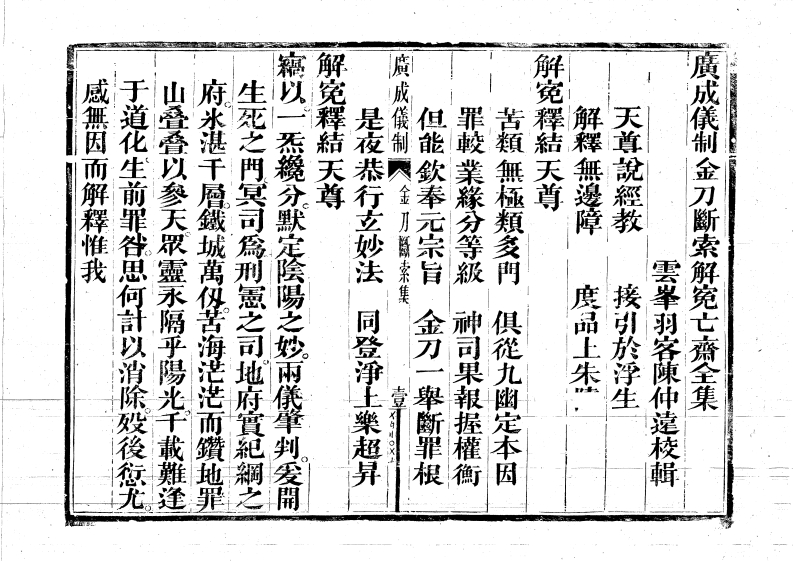 廣成儀制金刀斷索解冤亡齋全集
雲峯羽客陳仲遠校輯
天尊說經教　接引於浮生
解釋無邊障　度品上朱陵
解冤釋結天尊
苦類無極類多門　俱從九幽定本因
罪較業緣分等級　神司果報握權衡
但能欽奉元宗旨　金刀一舉斷罪根
是夜恭行玄妙法　同登淨土樂超昇
廣成儀制　金刀斷索集　壹
解冤釋結天尊
竊以。一炁纔分。默定陰陽之妙。兩儀肇判。爰開
生死之門。冥司為刑憲之司。地府實紀綱之
府。氷湛千層。鐵城萬仭。苦海茫茫而鑽地罪
山叠叠以參天。眾靈永隔乎陽光。千載難逢
于道化生前罪咎。思何計以消除。歿後愆尤。
感無因而解釋惟我